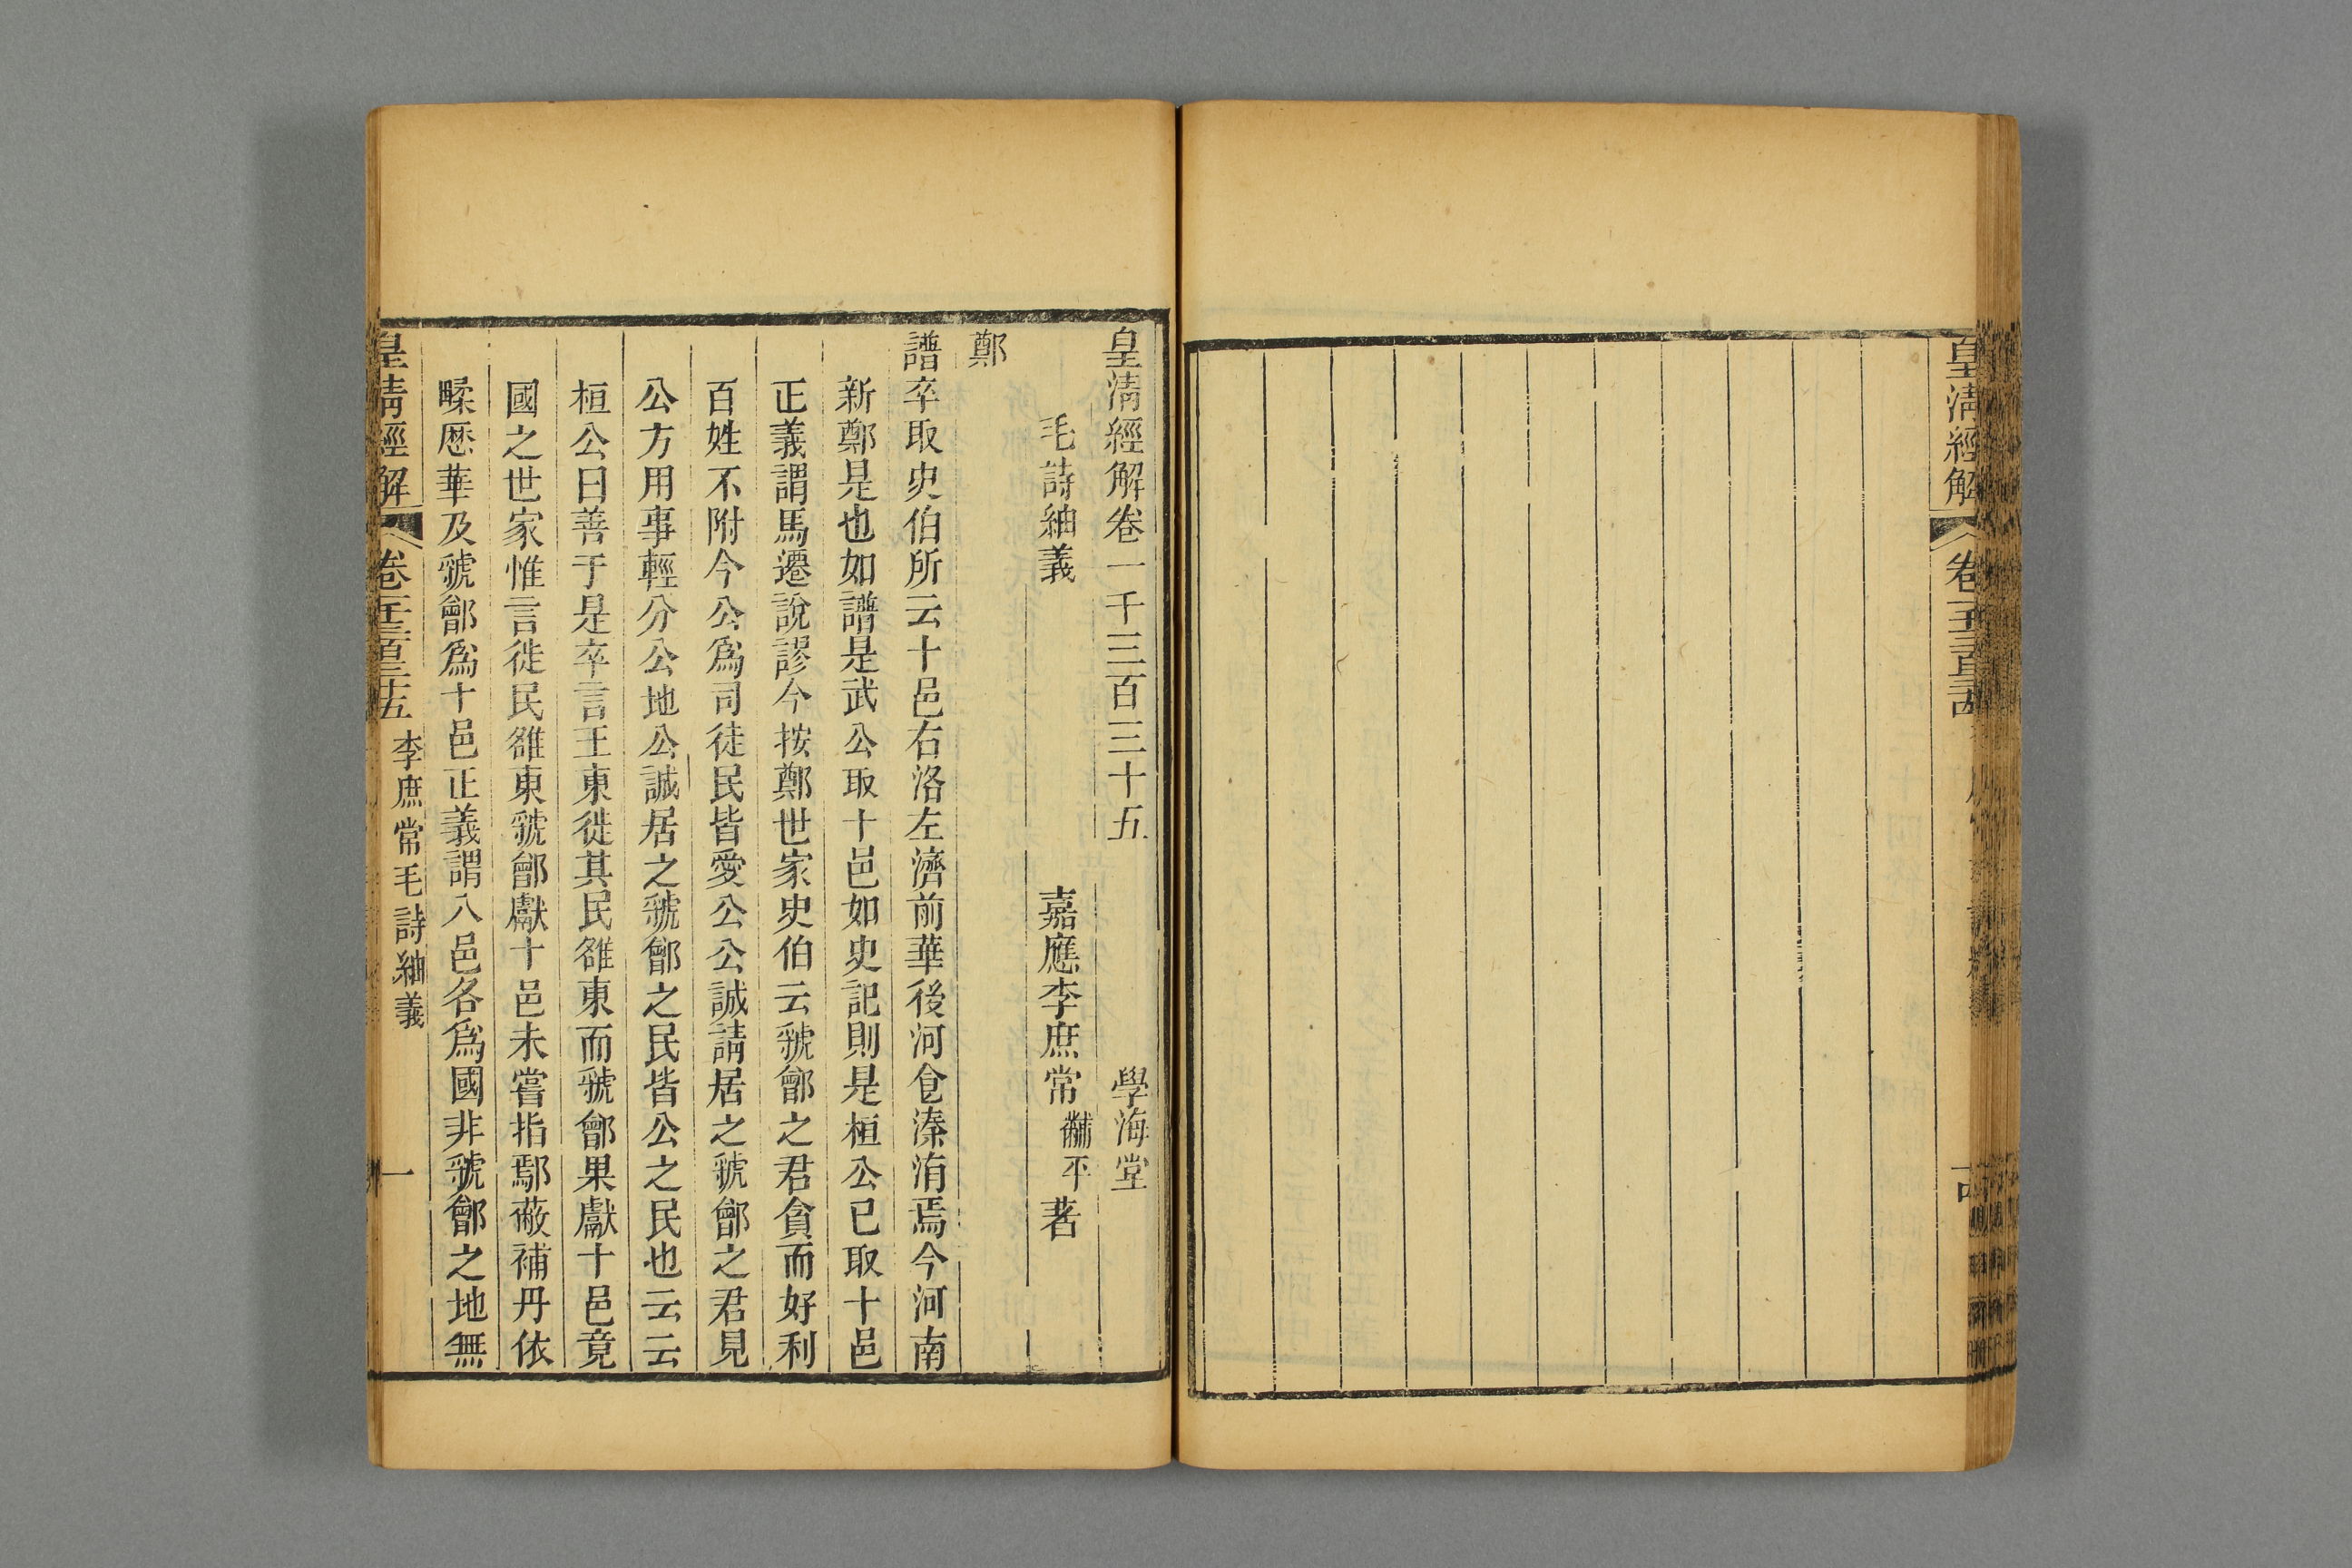 皇清經解
皇清經解卷一千三百三十五
學海堂
毛詩紬義
嘉應李庶常黼平著
鄭
譜卒取史伯所云十邑右洛左濟前華後河食溱洧焉今河南
新鄭是也如譜是武公取十邑如史記則是桓公已取十邑
正義謂馬遷說謬今按鄭世家史伯云虢鄶之君貪而好利
百姓不附今公爲司徒民皆愛公公誠請居之虢鄶之君見
公方用事輕分公地公誠居之虢鄶之民皆公之民也云云
桓公曰善于是卒言王東徙其民雒東而虢鄶果獻十邑竟
國之世家惟言徙民雒東虢鄶獻十邑未嘗指鄢蔽補丹依
㽥厯華及虢鄶爲十邑正義謂八邑各爲國非虢鄶之地無
皇清經解
卷一千三百三十五
李庶常毛詩紬義
一